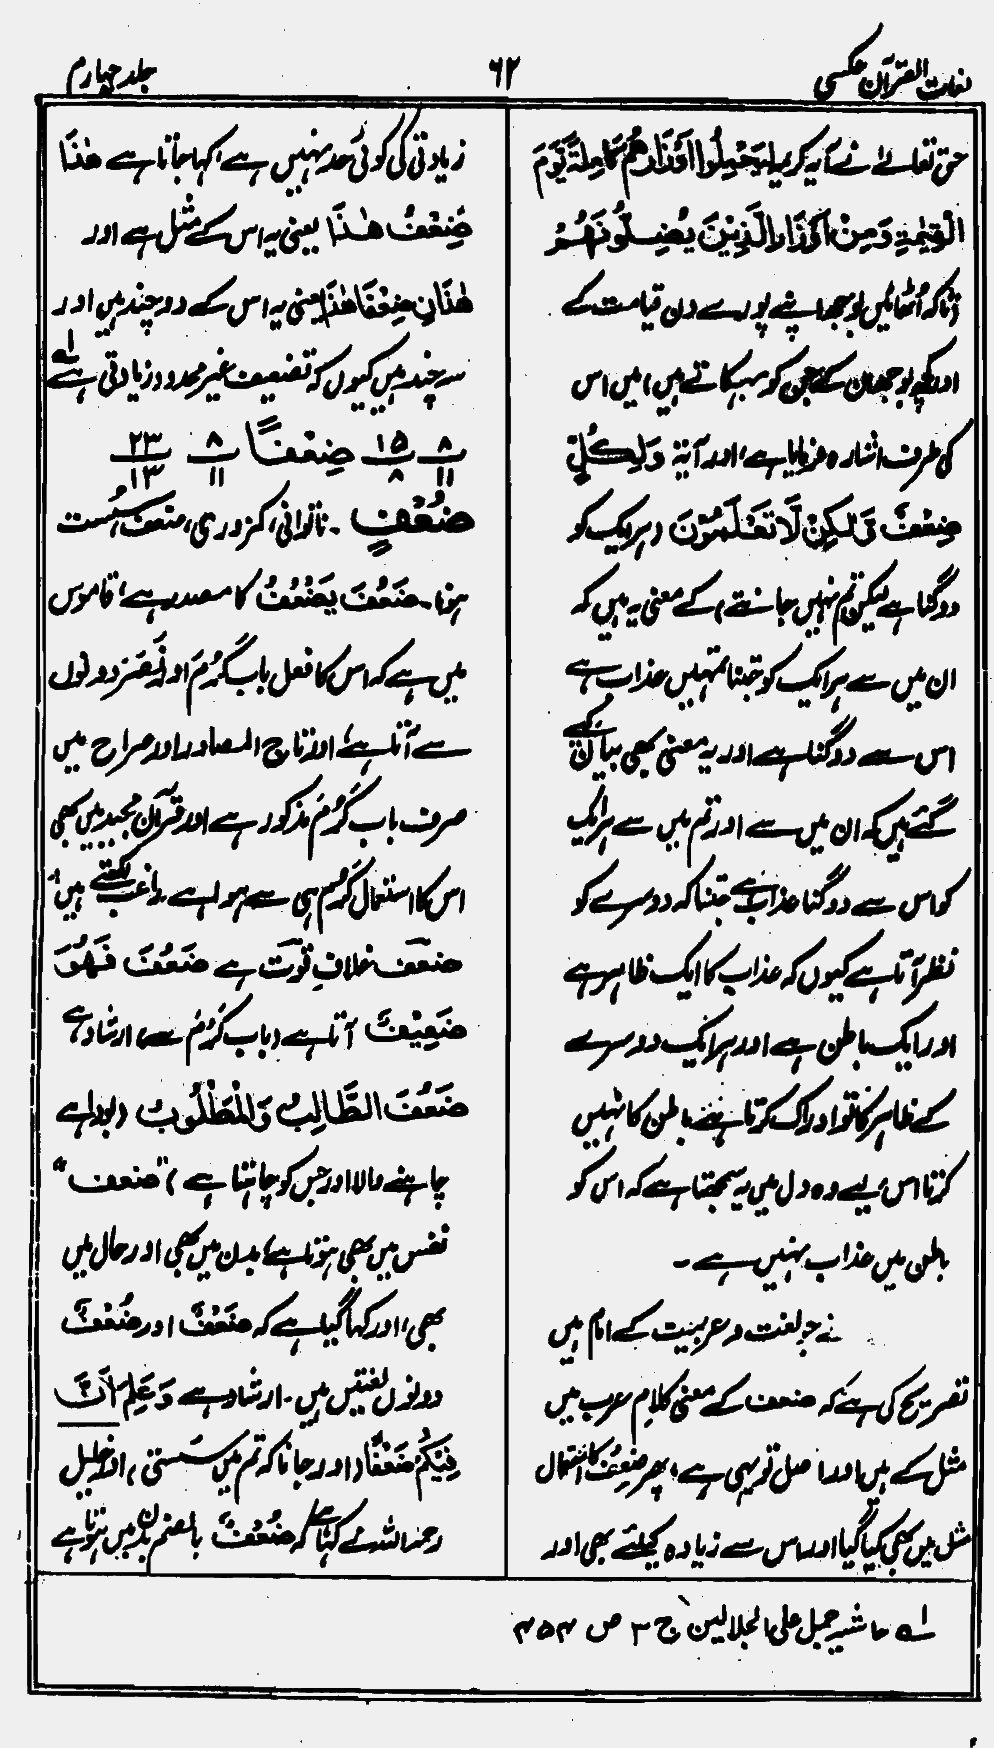 لغات القرآن عکسی
۶۲
جلد چہارم
حق تعالےٰ نے آیۂ کریمہ لِیَحْمِلُوْا اَوْزَارَهُمْ کَامِلَةً یَّوْمَ
الْقِیٰمَةِ وَمِنْ اَوْزَارِ الَّذِیْنَ یُضِلُّوْنَهُمْ
(تاکہ اُٹھائیں بوجھ اپنے پورے دن قیامت کے
اور کچھ بوجھ ان کے جن کو بہکاتے ہیں) میں اس
کی طرف اشارہ فرمایا ہے، اور آیۃ وَلِکُلٍّ
ضِعْفٌ وَّلٰکِنْ لَّا تَعْلَمُوْنَ (ہر ایک کو
دوگنا ہے لیکن تم نہیں جانتے) کے معنی یہ ہیں کہ
ان میں سے ہر ایک کو جتنا تمہیں عذاب ہے
اس سے دوگنا ہے اور یہ معنی بھی بیان کیے
گئے ہیں کہ ان میں سے اور تم میں سے ہر ایک
کو اس سے دوگنا عذاب ہے جتنا کہ دوسرے کو
نظر آتا ہے کیوں کہ عذاب کا ایک ظاہر ہے
اور ایک باطن ہے اور ہر ایک دوسرے
کے ظاہر کا تو ادراک کرتا ہے باطن کا نہیں
کرتا اس لیے وہ دل میں یہ سمجھتا ہے کہ اس کو
باطن میں عذاب نہیں ہے ۔
نے جو لغت و عربیت کے امام ہیں
تصریح کی ہے کہ ضعف کے معنی کلام عرب میں
مثل کے ہیں اور اصل تو یہی ہے، پھر ضِعْف کا استعمال
مثل میں بھی کیا گیا اور اس سے زیادہ کیلئے بھی اور
زیادتی کی کوئی حد نہیں ہے، کہا جاتا ہے هٰذَا
ضِعْفُ هٰذَا یعنی یہ اس کے مثل ہے اور
هٰذَانِ ضِعْفَا هٰذَا یعنی یہ اس کے دو چند ہیں اور
سہ چند ہیں کیوں کہ تضعیف غیر محدود زیادتی ہے لہ
۸/۱۱ ۱۵/۸ ضِعْفًا ۸/۱۱ ۲۳/۱۳
ضُعْفٍ ۔ ناتوانی، کمزوری، ضعف، سُست
ہونا۔ ضَعُفَ یَضْعُفُ کا مصدر ہے، قاموس
میں ہے کہ اس کا فعل باب کَرُمَ اور نَصَرَ دونوں
سے آتا ہے، اور تاج المصادر اور صراح میں
صرف باب کَرُمَ مذکور ہے اور قرآن مجید میں بھی
اس کا استعمال کَرُمَ ہی سے ہوا ہے۔ راغب لکھتے ہیں
ضعف خلافِ قوت ہے ضَعُفَ فَهُوَ
ضَعِیْفٌ آتا ہے (باب کَرُمَ سے) ارشاد ہے
ضَعُفَ الطَّالِبُ وَالْمَطْلُوْبُ (بودا ہے
چاہنے والا اور جس کو چاہتا ہے) "ضعف"
نفس میں بھی ہوتا ہے، بدن میں بھی اور حال میں
بھی، اور کہا گیا ہے کہ ضَعْفٌ اور ضُعْفٌ
دونوں لغتیں ہیں۔ ارشاد ہے وَعَلِمَ اَنَّ
فِیْکُمْ ضَعْفًا (اور جانا کہ تم میں سستی) اور خلیل
رحمہ اللہ نے کہا ہے کہ ضُعْفٌ بالضم بدن میں ہوتا ہے
لہ حاشیہ جمل علی الجلالین ج ۳ ص ۴۵۴